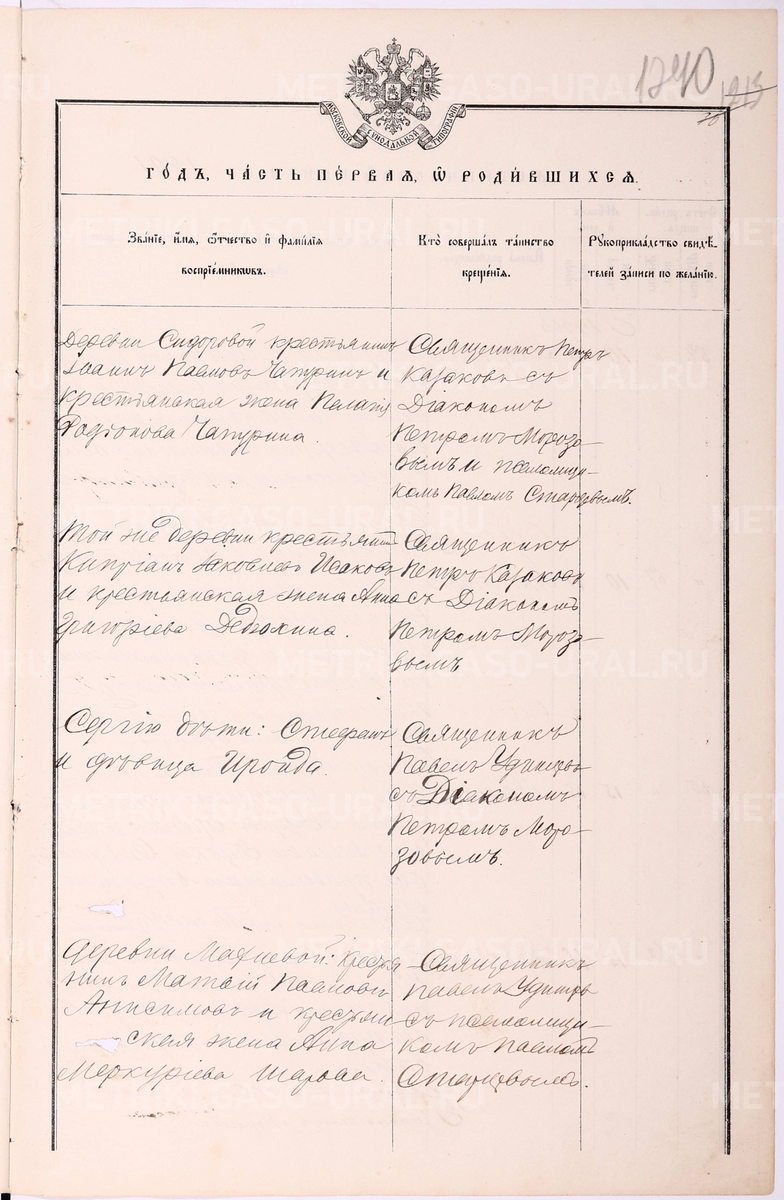 1240
1213
20
МОСКОВСКОЙ СУНОДАЛЬНОЙ ТИПОГРАФІИ
ГО́ДЪ, ЧА́СТЬ ПЕ́РВАЯ, Ѡ РОДИ́ВШИХСЯ.
Зва́ніе, и́мя, ѻ́тчество и҆ фами́лія
воспріе́мниковъ.
Кто̀ соверша́лъ та́инство
креще́нія.
Рꙋкоприкла́дство свидѣ́-
телей за́писи по жела́нію.
Деревни Сидоровой крестьянинъ
Іоаннъ Павловъ Чапуринъ и
крестьянская жена Пелагія
Родіонова Чапурина.
Священникъ Петръ
Казаковъ съ
Діакономъ
Петромъ Морозо-
вымъ и псаломщи-
комъ Павломъ Старцевымъ.
Той же деревни крестьянинъ
Кипріанъ Іаковлевъ Исаковъ
и крестьянская жена Анна
Григоріева
Священникъ
Петръ Казаковъ
съ Діакономъ
Петромъ Морозо-
вымъ
Сергію
и дѣвица Ираида.
Священникъ
Павелъ Удинцевъ
съ Діакономъ
Петромъ Моро-
зовымъ.
Деревни крестья-
нинъ Матѳій Павловъ
Анисимовъ и крестьян-
ская жена Анна
Меркуріева Шарова.
Священникъ
Павелъ Удинцевъ
съ псаломщи-
комъ Павломъ
Старцевымъ.